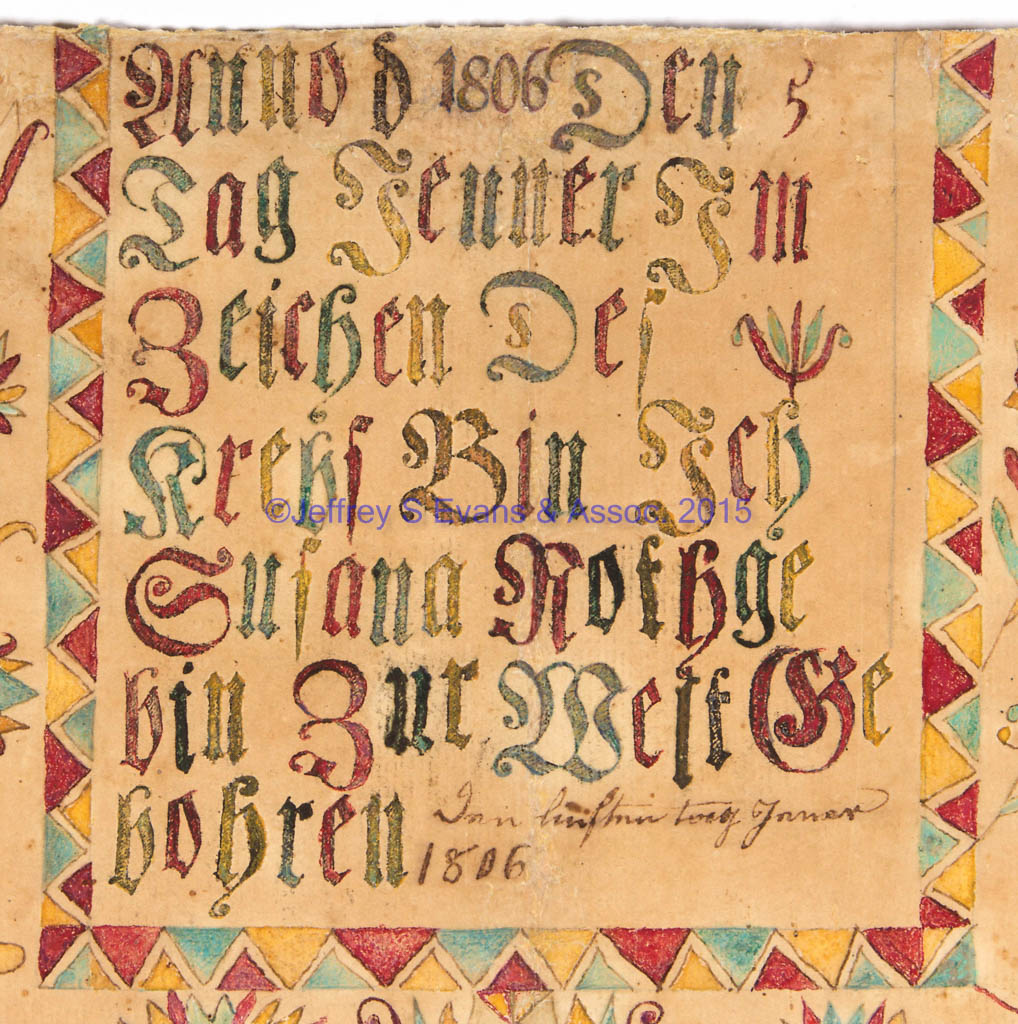 Anno d 1806 Den 5
Tag Jenner Im
Zeichen Deſ
Krehſ Bin Ich
©Jeffrey S Evans & Assoc. 2015
Suſana Rothge
bin Zur Welt Ge
bohren Den fünften tag Janer
1806